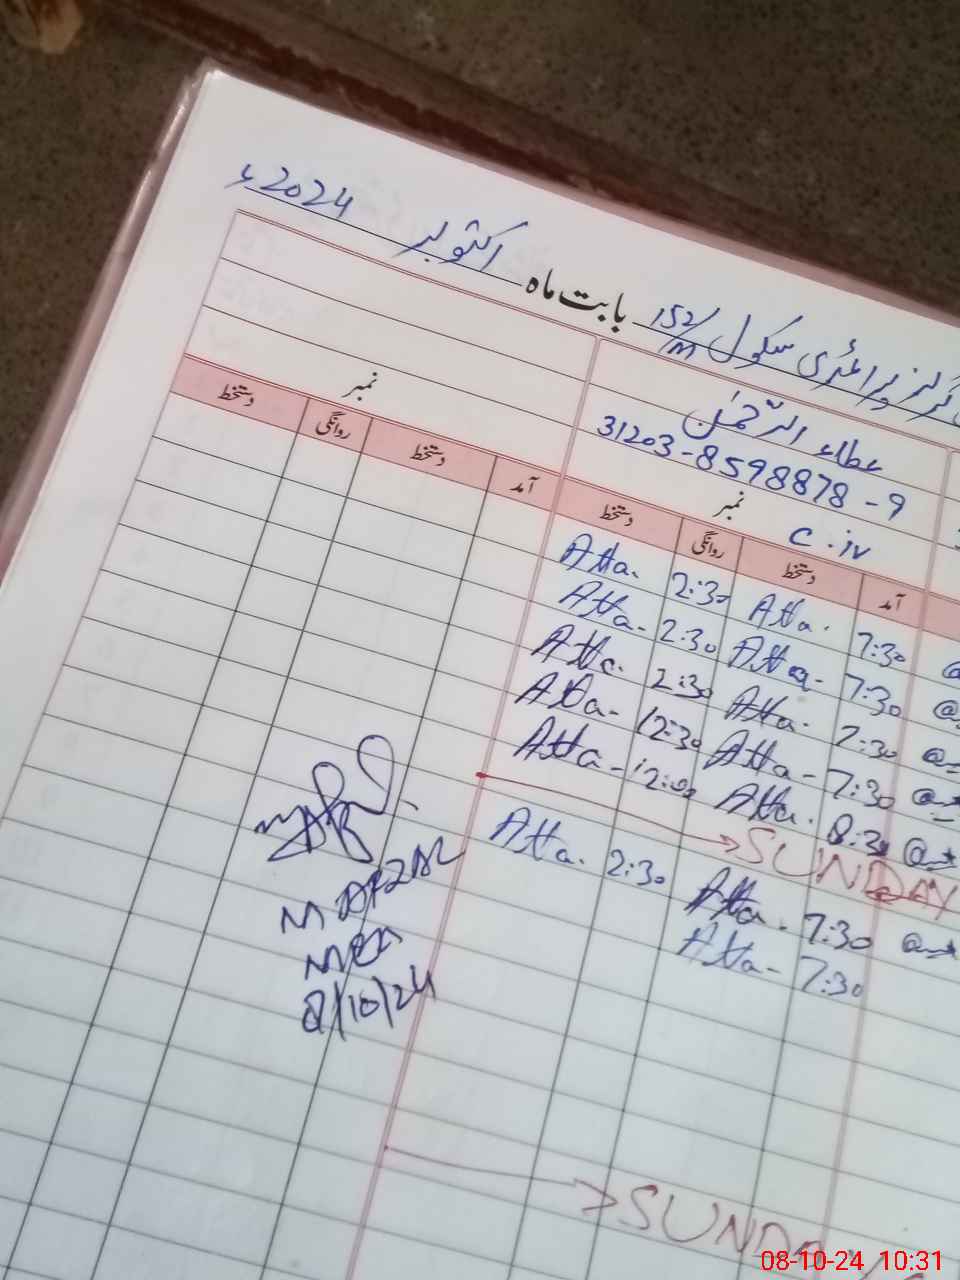 گرلز پرائمری سکول 152/M بابت ماہ اکتوبر 2024ء
عطاء الرحمٰن
31203-8598878-9
نمبر C.iv نمبر
آمد دستخط روانگی دستخط آمد دستخط روانگی دستخط
7:30 Atta. 2:30 Atta.
7:30 Atta- 2:30 Atta-
7:30 Atta. 2:30 Atta.
7:30 Atta- 12:30 Atta-
8:30 Atta. 12:00 Atta-
SUNDAY
7:30 Atta. 2:30 Atta.
7:30 Atta-
M AFZAL
MEA
8/10/24
SUNDAY
08-10-24 10:31